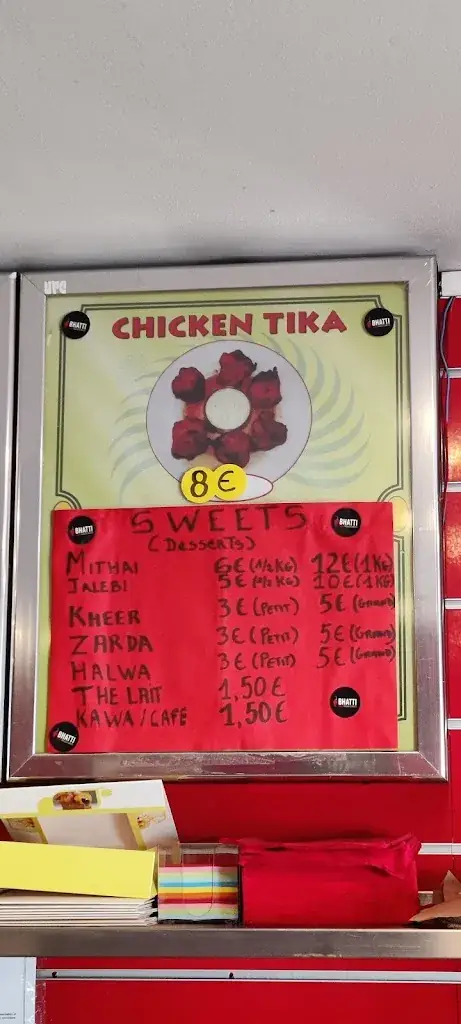 BHATTI
BHATTI
CHICKEN TIKA
8 €
BHATTI
BHATTI
SWEETS
(DESSERTS)
MITHAI 6€ (1/2 KG) 12€ (1KG)
JALEBI 5€ (1/2 KG) 10€ (1KG)
KHEER 3€ (PETIT) 5€ (GRAND)
ZARDA 3€ (PETIT) 5€ (GRAND)
HALWA 3€ (PETIT) 5€ (GRAND)
THE LAIT 1,50€
KAWA/CAFE 1,50€
BHATTI
BHATTI